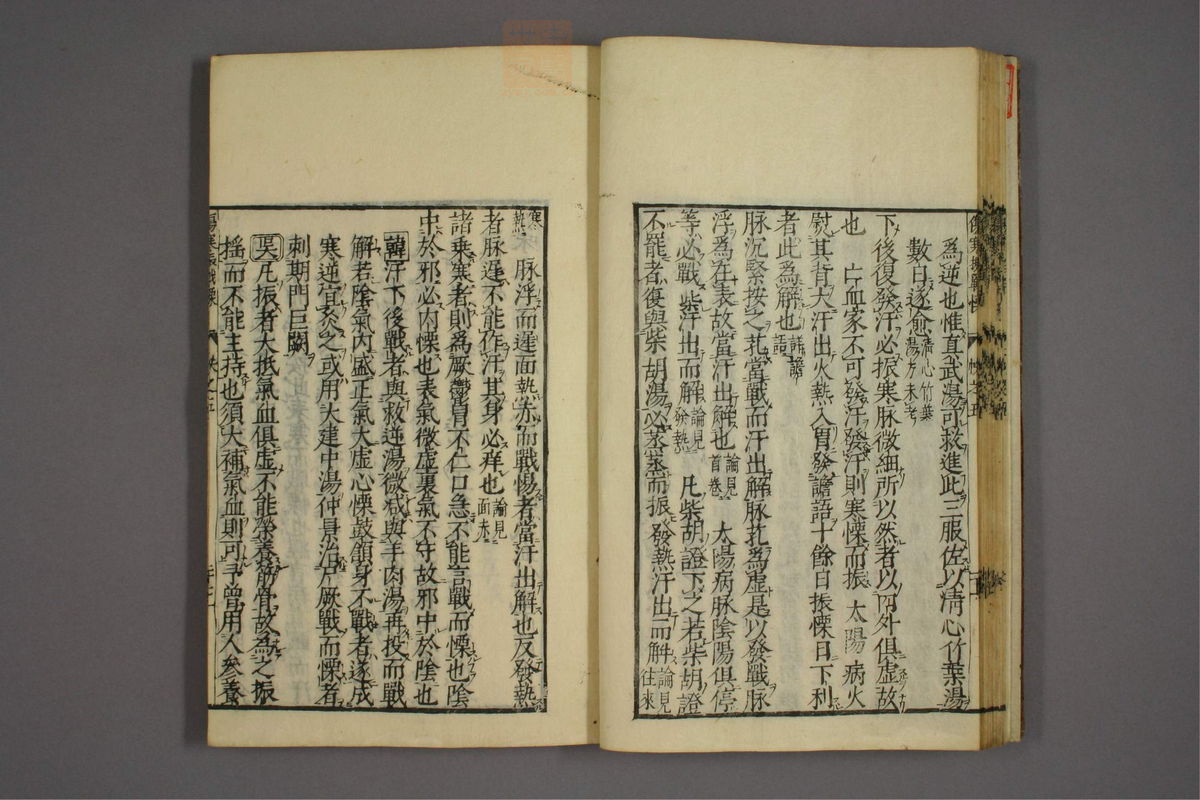 爲逆也惟真武湯可救進此三服佐以清心竹葉湯
數日遂愈清心竹葉湯方未考
下後復發汗必振寒脉微細所以然者以內外俱虛故
也 亡血家不可發汗發汗則寒慄而振 太陽病火
熨其背大汗出火熱入胃發譫語十餘日振慄自下利
者此爲解也譫語
脉沉緊按之芤當戰而汗出解脉芤爲虛是以發戰脉
浮爲在表故當汗出解也論見首卷 太陽病脉陰陽俱停
等必戰慄汗出而解論見發熱 凡柴胡證下之若柴胡證
不罷者復與柴胡湯必蒸蒸而振 發熱汗出而解論見往來
寒熱 脉浮而遲面熱赤而戰惕者當汗出解也反發熱
者脉遲不能作汗其身必痒也論見面赤
諸乘寒者則爲厥鬱冒不仁口急不能言戰而慄也陰
中於邪必內慄也表氣微虛裏氣不守故邪中於陰也
韓汗下後戰者與救逆湯微减與羊肉湯再投而戰
解若陰氣內盛正氣大虛心慄鼓頷身不戰者遂成
寒逆宜灸之或用大建中湯仲景治尸厥戰而慄者
刺期門巨闕
吴凡振者大抵氣血俱虛不能榮養筋骨故爲之振
搖而不能主持也須大補氣血則可予曾用人參養